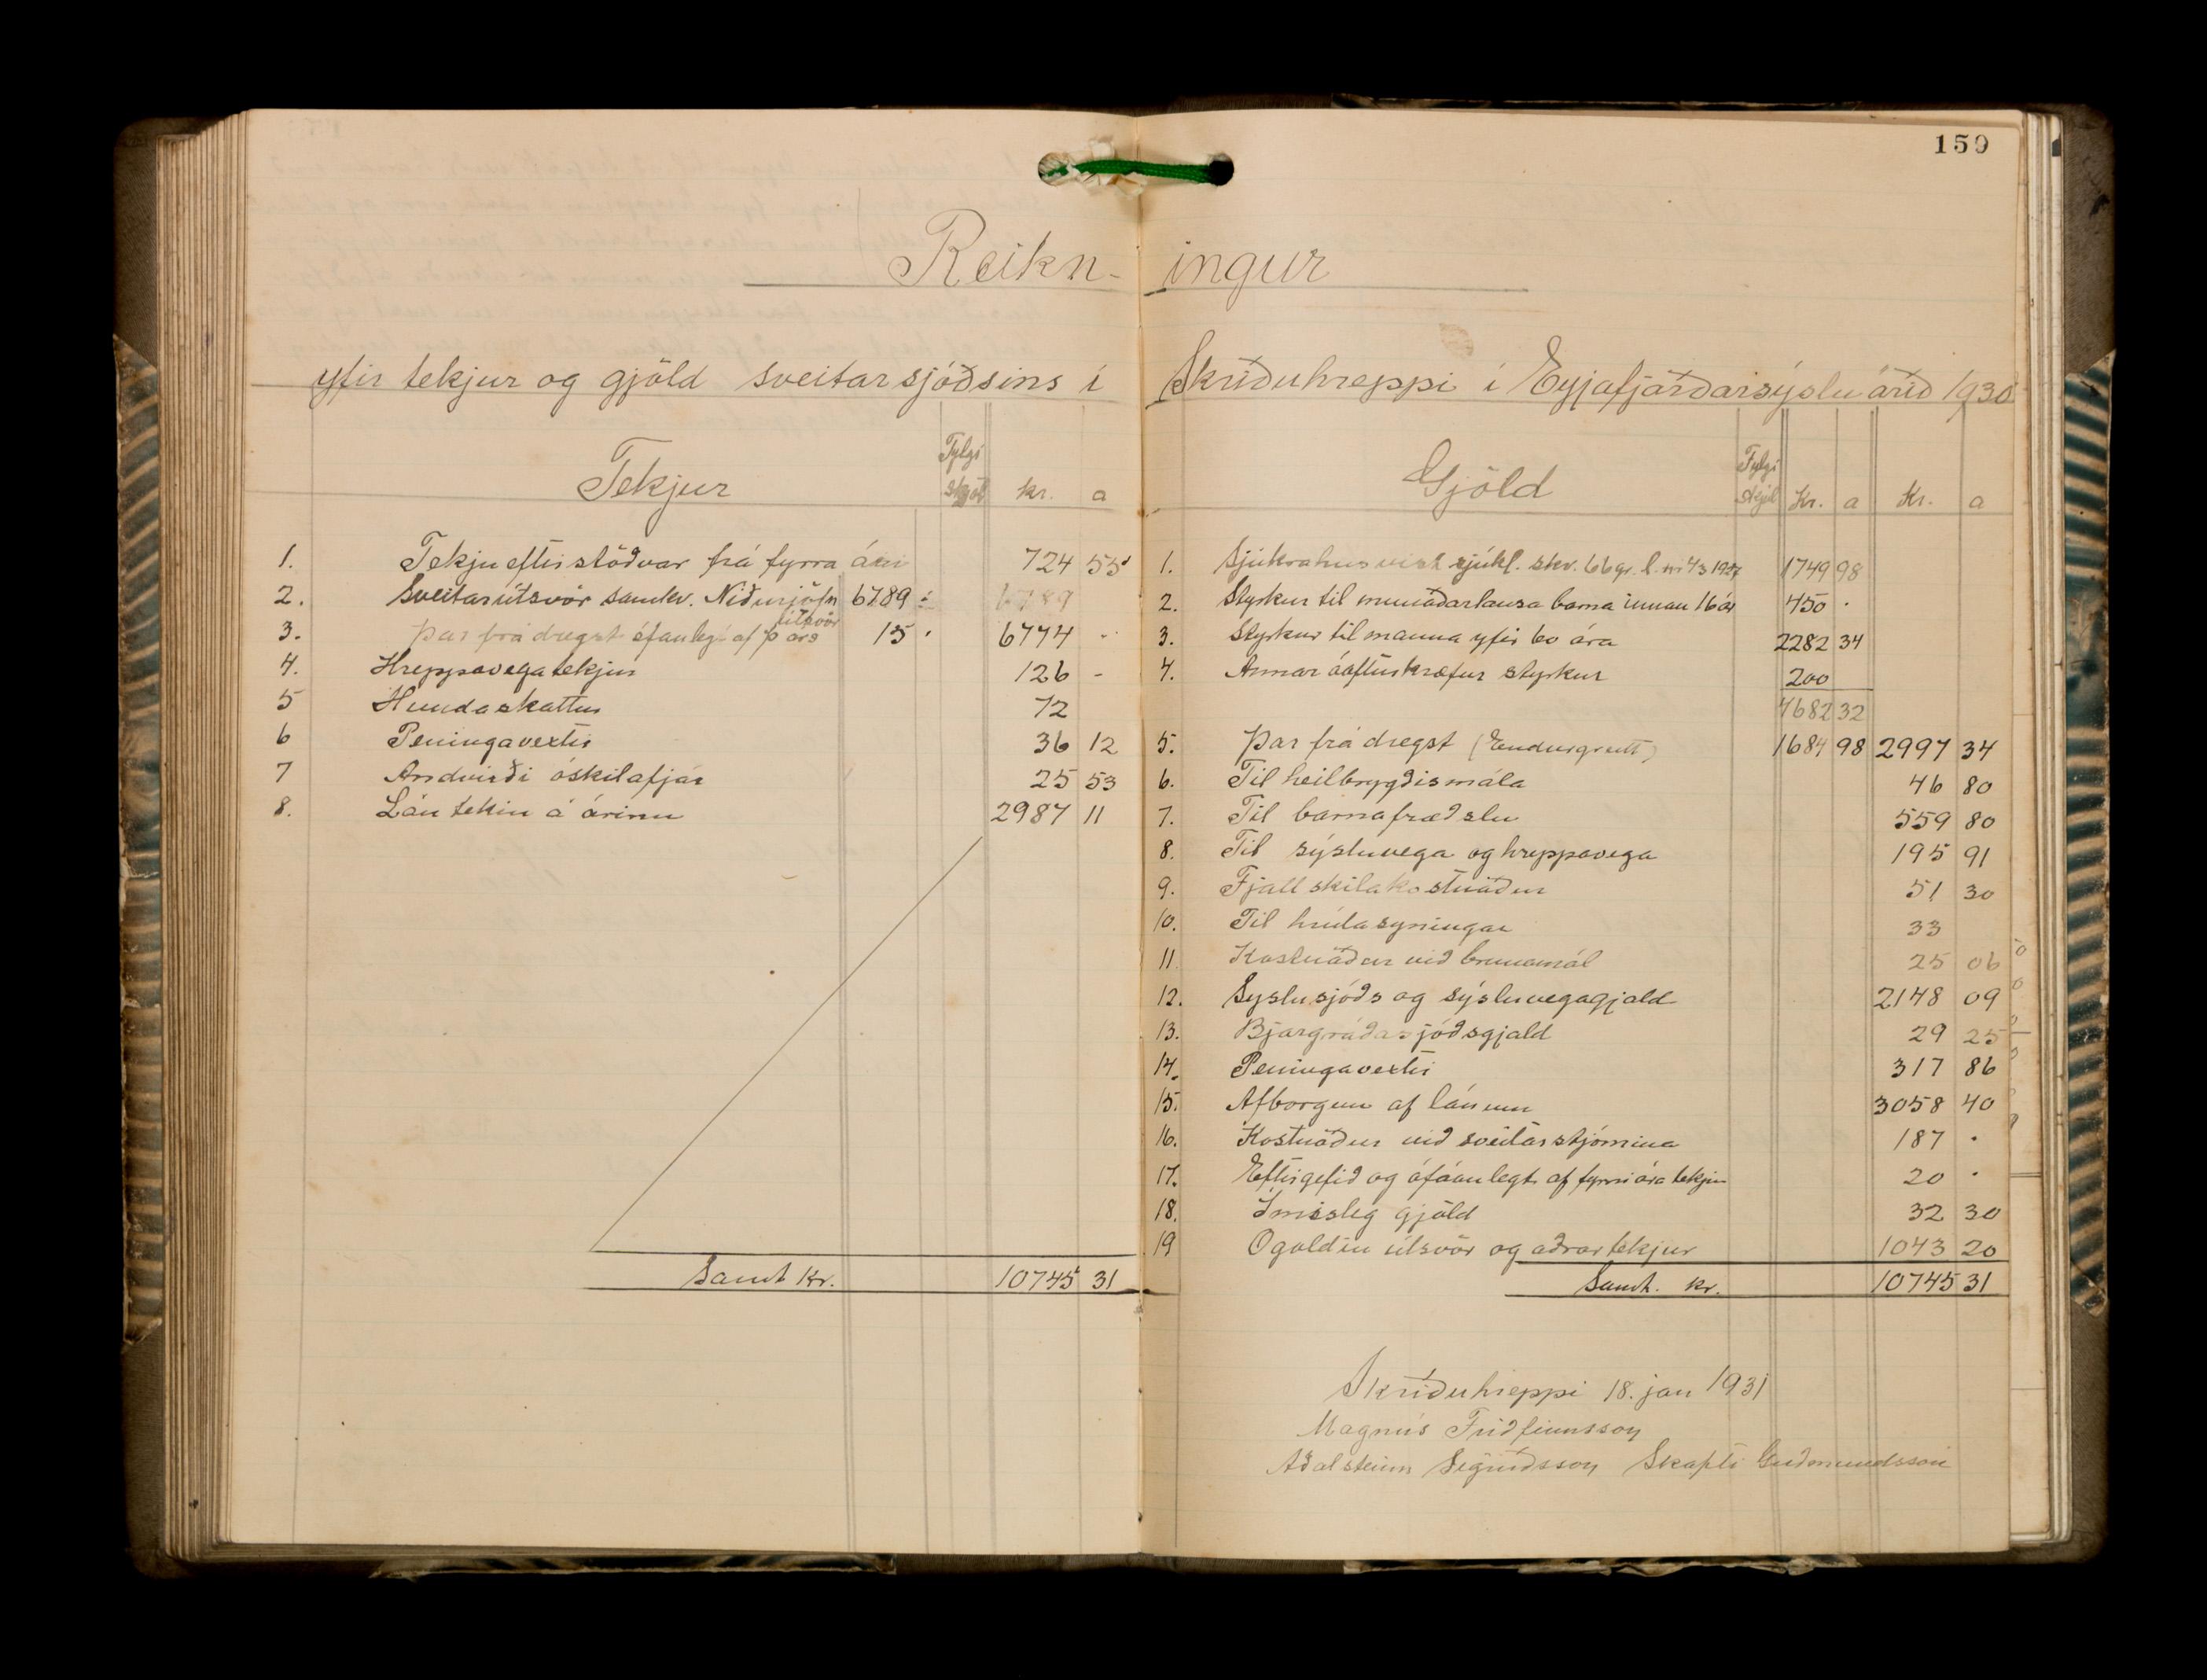 159
Reikn- ingur
yfir tekjur og gjöld sveitarsjóðsins í Skriðuhreppi í Eyjafjarðarsýslu árið 1930
Tekjur Fylgi skjöl kr. a
1. Tekju eftirstöðvar frá fyrra ári 724 55
2. Sveitarútsvör samkv. Niðurjöfn 6789 - 6789
3. Þar frá dregst ófanleg af þ árs útsvör 15 . 6774 -
4. Hreppavegatekjur 126 -
5 Hundaskattur 72
6 Peningavextir 36 12
7 Andvirði óskilafjár 25 53
8. Lán tekin á árinu 2987 11
Samt Kr. 10745 31
Gjöld Fylgi skjöl Kr. a Kr. a
1. Sjúkrahusvist sjúkl. skv. 66 gr. l. nr 43 1927 1749 98
2. Styrkur til munaðarlausa barna innan 16 ár 450 .
3. Styrkur til manna yfir 60 ára 2282 34
4. Annar óafturkræfur styrkur 200
4682 32
5. Þar frá dregst (Endurgreitt) 1684 98 2997 34
6. Til heilbrygðismála 46 80
7. Til barnafræðslu 559 80
8. Til sýsluvega og hreppavega 195 91
9. Fjallskilakostnaður 51 30
10. Til hrútasyningar 33
11 Kostnaður við brunamál 25 06
12. Syslusjóðs og sýsluvegagjald 2148 09
13. Bjargráðasjóðsgjald 29 25
14. Peningavextir 317 86
15. Afborgun af lánum 3058 40
16. Kostnaður við sveitarstjórnina 187 .
17. Eftirgefið og ófáanlegt af fyrri ára tekjum 20 .
18. Ímisleg gjöld 32 30
19 Ógoldin útsvör og aðrar tekjur 1043 20
Samt. kr. 10745 31
Skriðuhreppi 18. jan 1931
Magnús Friðfinnsson
Aðalsteinn Sigurðsson Skapti Guðmundsson